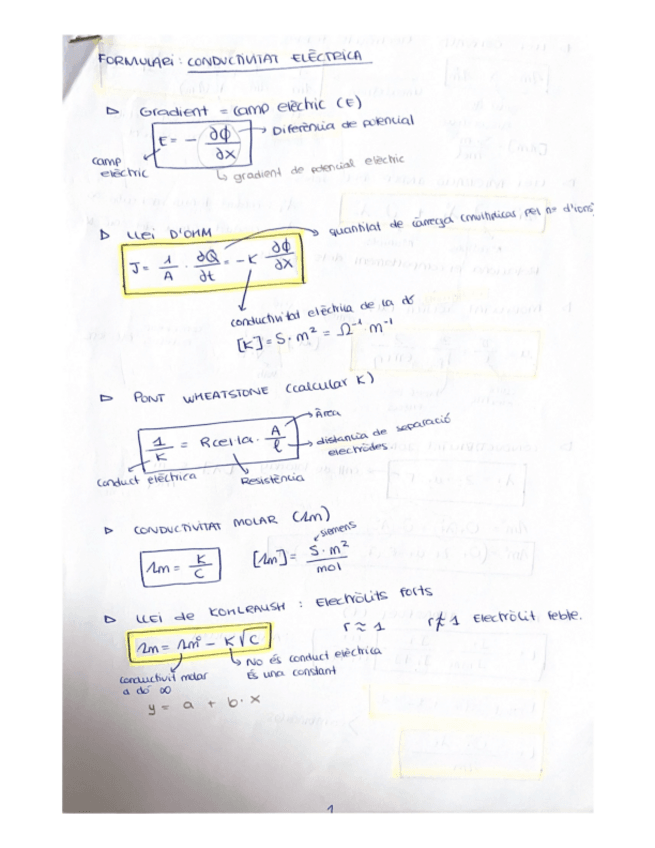 FORMULARI: CONDUCTIVITAT ELÈCTRICA
▷ Gradient = camp elèctric (E)
E = - ∂ϕ/∂x → Diferència de potencial
camp elèctric
↳ gradient de potencial elèctric
▷ LLEI D'OHM
→ quantitat de càrrega (multiplicas pel nº d'ions)
J = 1/A · ∂Q/∂t = -K ∂ϕ/∂x
conductivitat elèctrica de la dó
[K] = S·m² = Ω⁻¹·m⁻¹
▷ PONT WHEATSTONE (calcular K)
→ Àrea
1/K = Rcel·la · A/ℓ → distancia de separació elèctrodes
conduct elèctrica
Resistència
▷ CONDUCTIVITAT MOLAR (Λm)
siemens
Λm = K/C [Λm] = S·m²/mol
▷ LLEI de KOHLRAUSH : Electròlits forts
r ≈ 1 r ≉ 1 Electròlit feble.
Λm = Λm° - K√C
↳ No és conduct elèctrica
És una constant
conductivit molar
a do ∞
y = a + b·x
1